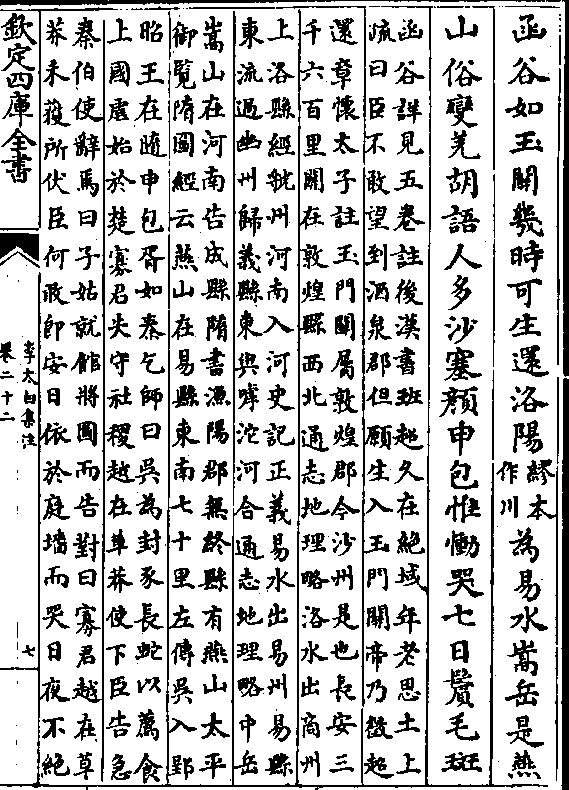 函谷如玉關幾時可生還洛陽繆本作川為易水嵩岳是燕
山俗變羌胡語人多沙塞顔申包惟慟哭七日鬢毛斑
函谷詳見五卷註後漢書班超久在絶域年老思土上
疏曰臣不敢望到酒泉郡但願生入玉門關帝乃徴超
還章懷太子註玉門關屬敦煌郡今沙州是也長安三
千六百里關在敦煌縣西北通志地理略洛水出商州
上洛縣經虢州河南入河史記正義易水出易州易縣
東流過幽州歸義縣東與嘑沱河合通志地理略中岳
嵩山在河南告成縣隋書漁陽郡無終縣有燕山太平
御覽隋圖經云燕山在易縣東南七十里左傳吳入郢
昭王在隨申包胥如秦乞師曰吳為封豕長蛇以薦食
上國虐始於楚寡君失守社稷越在草莽使下臣告急
秦伯使辭焉曰子姑就館將圖而告對曰寡君越在草
莽未獲所伏臣何敢即安日依於庭墻而哭日夜不絶
欽定四庫全書
李太白集注
卷二十二
七